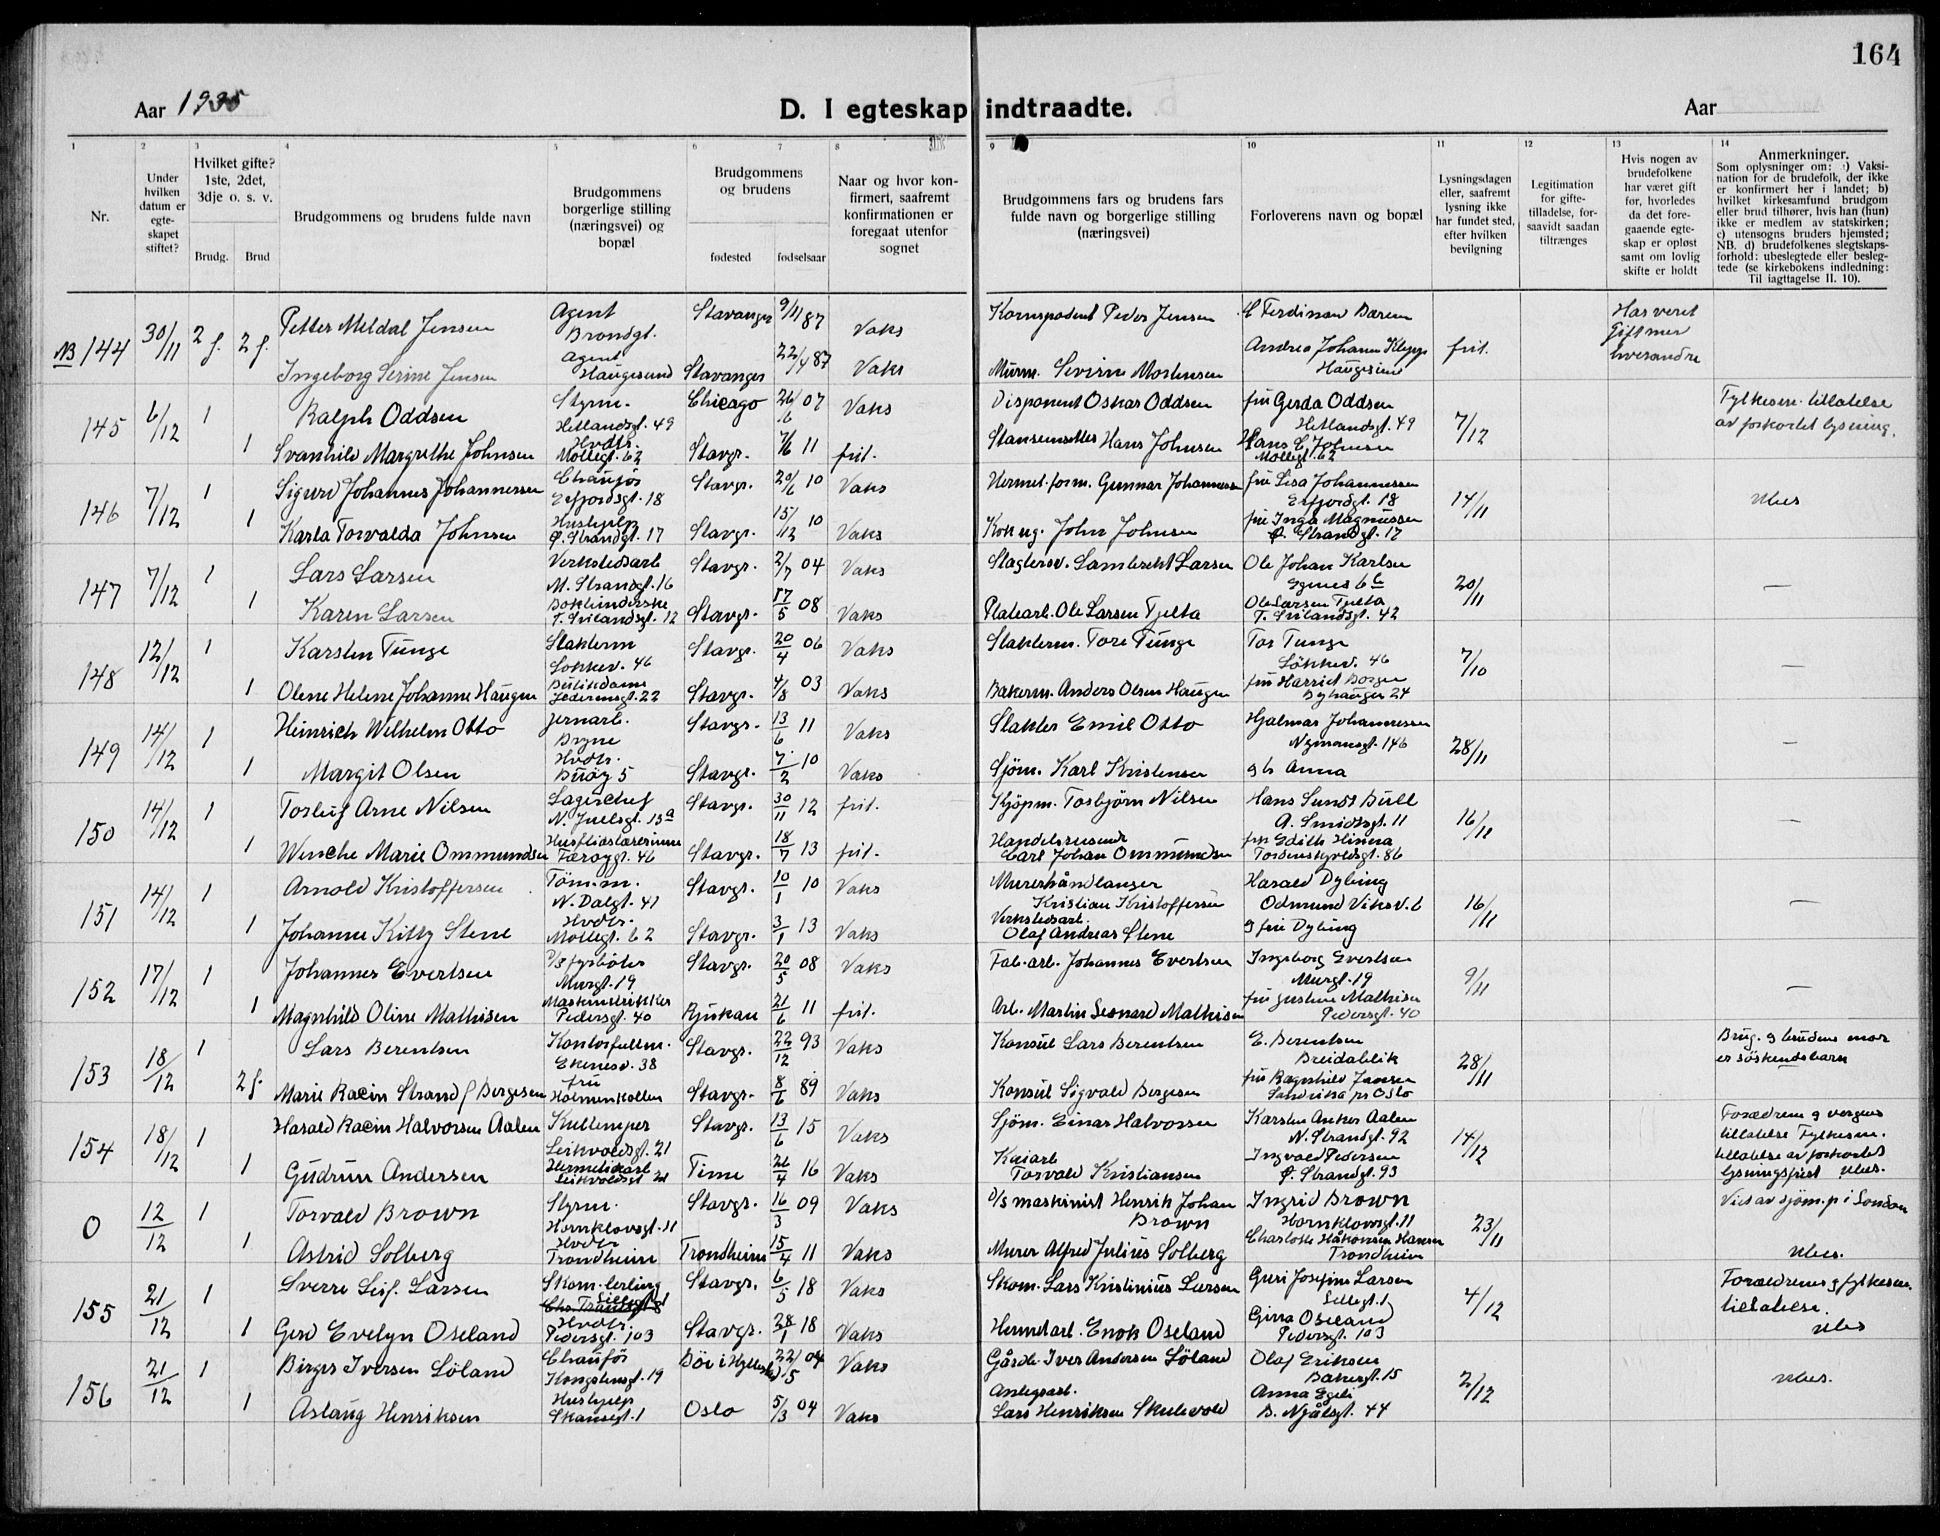 164
Aar 1935
D. I egteskap indtraadte.
Aar
1 2 3 4 5 6 7 8 9 10 11 12 13 14
Nr.
Under hvilken datum er egteskapet stiftet?
Hvilket gifte? 1ste, 2det, 3dje o. s. v.
Brudg. Brud
Brudgommens og brudens fulde navn
Brudgommens borgerlige stilling (næringsvei) og bopæl
Brudgommens og brudens
fødested fødselsaar
Naar og hvor konfirmert, saafremt konfirmationen er foregaat utenfor sognet
Brudgommens fars og brudens fars fulde navn og borgerlige stilling (næringsvei)
Forloverens navn og bopæl
Lysningsdagen eller, saafremt lysning ikke har fundet sted, efter hvilken bevilgning
Legitimation for giftetilladelse, forsaavidt saadan tiltrænges
Hvis nogen av brudefolkene har været gift før, hvorledes da det foregaaende egteskap er opløst samt om lovlig skifte er holdt
Anmerkninger.
Som oplysninger om: a) Vaksination for de brudefolk, der ikke er konfirmert her i landet; b) hvilket kirkesamfund brudgom eller brud tilhører, hvis han (hun) ikke er medlem av statskirken; c) utensogns bruders hjemsted; NB. d) brudefolkenes slegtskapsforhold: ubeslegtede eller beslegtede (se kirkebokens indledning: Til iagttagelse II. 10).
NB 144 30/11 2 g. 2 g. Petter Meldal Jensen Agent Stavanger 9/11 87 Vaks Peder Jensen Ferdinan Har veret
Gift mer
Ingeborg Serine Jensen Agent Haugesund Stavanger 22/4 87 Vaks Murm. Severin Mortensen Andrea Johanne Klepp Haugesund frit. hverandre
145 6/12 1 Ralph Oddsen Styrm. Hetlandsgt. 49 Chicago 26/6 07 Vaks Disponent Oskar Oddsen fru Gerda Oddsen Hetlandsgt. 49 7/12 Fylkesm. tillatelse
av forkortet lysning.
1 Svanhild Margrethe Johnsen Hvdtr. Møllegt. 62 Stavgr. 7/6 11 frit. Hans Johnsen Hans E Johnsen Møllegt. 62
146 7/12 1 Sigurd Johannes Johannessen Chaufør Erfjordsgt. 18 Stavgr. 20/6 10 Vaks Hermet. form. Gunnar Johannessen fru Lisa Johannessen Erfjordgt. 18 14/11 Ubes
1 Karla Torvalda Johnsen Hushjelp Ø. Strandgt. 17 Stavgr. 15/12 10 Vaks John Johnsen fru Inga Magnussen Ø. Strandgt. 17
147 7/12 1 Lars Larsen Verkstedsarb M. Strandgt. 16 Stavgr. 2/7 04 Vaks Lambrekt Larsen Ole Johan Karlsen 20/11 —
1 Karen Larsen T. Smilandsgt. 12 Stavgr. 17/5 08 Vaks Platearb. Ole Larsen Tjelta Ole Larsen Tjelta T. Smilandsgt. 42
148 12/12 1 Karsten Tunge Slakterm Løkkev. 46 Stavgr. 20/4 06 Vaks Slakterm. Tore Tunge Tor Tunge Løkkev. 46 7/10 —
1 Olene Helene Johanne Haugen Butikdame Stavgr. 4/8 03 Vaks Bakerm. Anders Olsen Haugen fru Harriet Borgen Byhaugen 24
149 14/12 1 Heinrich Wilhelm Otto Jernarb. Bryne Stavgr. 13/6 11 Vaks Slakter Emil Otto Hjalmar Johannessen Nymansgt. 146 28/11 —
1 Margit Olsen Hvdtr. Buøy 5 Stavgr. 7/2 10 Vaks Sjøm. Karl Kristensen og Anna
150 14/12 1 Torleif Arne Nilsen Lagerchef N. Juelsgt. 13a Stavgr. 30/11 12 frit. Kjøpm. Torbjørn Nilsen Hans Sundt Bull A. Smidtsgt. 11 16/11 —
1 Wenche Marie Ommundsen Husflidslærerinne Færøygt. 46 Stavgr. 18/7 13 frit. Handelsreisende Carl Johan Ommundsen fru Edith Hinna Tordenskjoldsgt. 86
151 14/12 1 Arnold Kristoffersen Tøm.m. N. Dalgt. 41 Stavgr. 10/1 10 Vaks Murerhåndlanger Kristian Kristoffersen Harald Dybing Odmund Viksv. 6 16/11 —
1 Johanne Kitty Stene Hvdtr. Møllegt. 62 Stavgr. 3/1 13 Vaks Verkstedsarb. Olaf Andreas Stene og fru Dybing
152 17/12 1 Johannes Evertsen D/S fyrbøter Murgt. 19 Stavgr. 20/5 08 Vaks Fab. arb. Johannes Evertsen Ingeborg Evertsen Murgt. 19 9/11 —
1 Magnhild Oline Mathisen Maskinstrikker Pedersgt. 40 Rjukan 21/6 11 frit. Arb. Martin Leonard Mathisen fru Gustine Mathisen Pedersgt. 40
153 18/12 1 Lars Berentsen Kontorfullm. Ekenesv. 38 Stavgr. 22/12 93 Vaks Konsul Lars Berentsen E. Berentsen Breidablik 28/11 Brug. og brudens mor
er søskendebarn
2 g. Marie Racin Strand f Bergesen fru Holmenkollen Stavgr. 8/6 89 Vaks Konsul Sigvald Bergesen fru Ragnhild Jansen pr Oslo
154 18/12 1 Harald Racin Halvorsen Aalen Kullemper Leikvoldsgt. 21 Stavgr. 13/6 15 Vaks Sjøm. Einar Halvorsen Karsten Anker Aalen N. Strandgt. 92 14/12 Foreldrenes og verges
tillatelse Fylkesm.
tillatelse av forkortet
lysningsfrist Ubes.
1 Gudrun Andersen Hermetikkarb Leikvoldsgt 21 Time 26/4 16 Vaks Kaiarb Torvald Kristiansen Ingvald Pedersen Ø. Strandgt. 93
0 12/12 1 Torvald Brown Styrm. Hornklovsgt. 11 Stavgr. 16/3 09 Vaks D/S maskinist Henrik Johan Brown Ingrid Brown Hornklovsgt. 11 23/11 Viet av sjøm.p i London
1 Astrid Solberg Hvdtr Trondheim Trondheim 15/4 11 Vaks Murer Alfred Julius Solberg Charlotte Håkonsen Hansen Trondheim Ubes.
155 21/12 1 Sverre Leif. Larsen Skom. lerling Lillegt. 1 Stavgr. 6/5 18 Vaks Skom. Lars Kristinius Larsen Guri Josefine Larsen Lillegt. 1 4/12 Foreldrenes og fylkesm.
tillatelse.
Ubes
1 Gerd Evelyn Oseland Hvdtr. Pedersgt. 103 Stavgr. 28/1 18 Vaks Hermetarb. Enok Oseland Gina Oseland Pedersgt. 103
156 21/12 1 Birger Iversen Løland Chaufør Kongstensgt. 19 Bøe i Hjelmeland 22/5 04 Vaks Gårdb. Iver Andersen Løland Olaf Eriksen Bakergt. 15 2/12 Ubes.
1 Aslaug Henriksen Hushjelp Skansegt. 1 Oslo 5/3 04 Vaks Anlegsarb. Lars Henriksen Skulevold Anna Egeli B. Njålsgt. 44